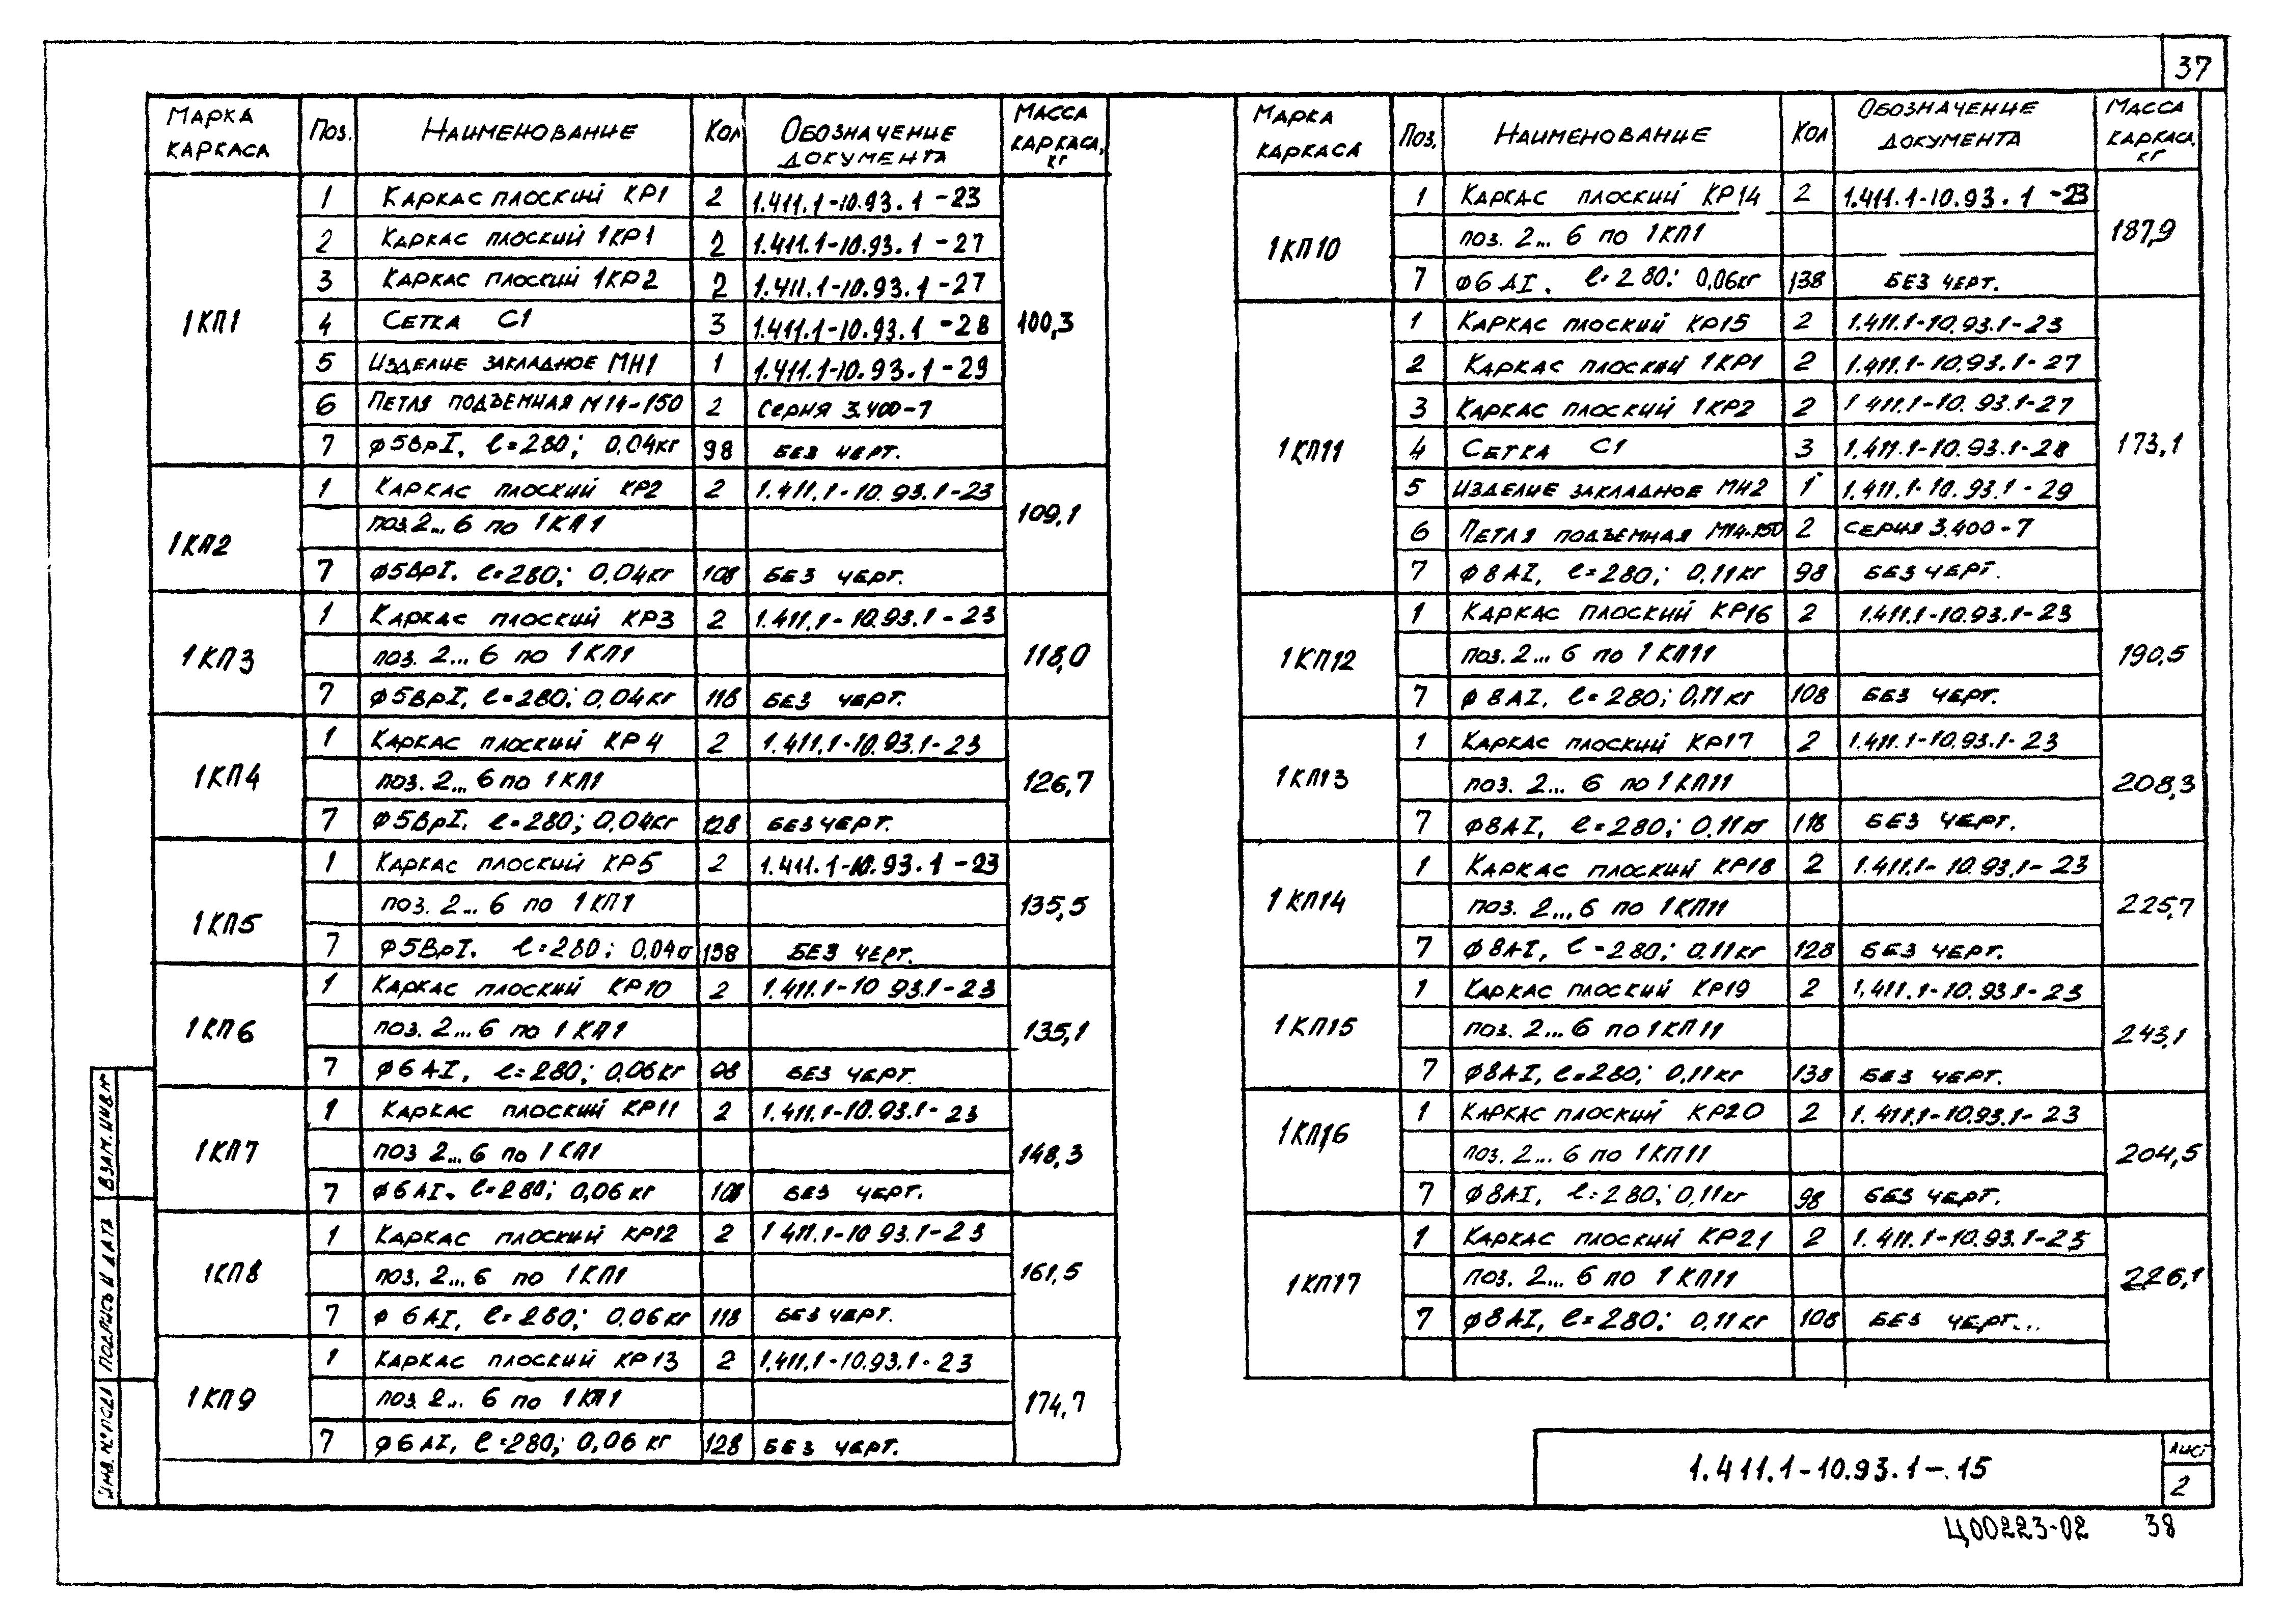 37
МАРКА КАРКАСА ПОЗ. НАИМЕНОВАНИЕ КОЛ ОБОЗНАЧЕНИЕ ДОКУМЕНТА МАССА КАРКАСА, КГ
1КП1 100,3
1 КАРКАС ПЛОСКИЙ КР1 2 1.411.1-10.93.1-23
2 КАРКАС ПЛОСКИЙ 1КР1 2 1.411.1-10.93.1-27
3 КАРКАС ПЛОСКИЙ 1КР2 2 1.411.1-10.93.1-27
4 СЕТКА С1 3 1.411.1-10.93.1-28
5 ИЗДЕЛИЕ ЗАКЛАДНОЕ МН1 1 1.411.1-10.93.1-29
6 ПЕТЛЯ ПОДЪЕМНАЯ М14-150 2 СЕРИЯ 3.400-7
7 ϕ5ВрI, ℓ=280; 0,04кг 98 БЕЗ ЧЕРТ.
1КП2 109,1
1 КАРКАС ПЛОСКИЙ КР2 2 1.411.1-10.93.1-23
ПОЗ. 2...6 ПО 1КП1
7 ϕ5ВрI, ℓ=280; 0,04кг 108 БЕЗ ЧЕРТ.
1КП3 118,0
1 КАРКАС ПЛОСКИЙ КР3 2 1.411.1-10.93.1-23
ПОЗ. 2...6 ПО 1КП1
7 ϕ5ВрI, ℓ=280; 0,04кг 118 БЕЗ ЧЕРТ.
1КП4 126,7
1 КАРКАС ПЛОСКИЙ КР4 2 1.411.1-10.93.1-23
ПОЗ. 2...6 ПО 1КП1
7 ϕ5ВрI, ℓ=280; 0,04кг 128 БЕЗ ЧЕРТ.
1КП5 135,5
1 КАРКАС ПЛОСКИЙ КР5 2 1.411.1-10.93.1-23
ПОЗ. 2...6 ПО 1КП1
7 ϕ5ВрI, ℓ=280; 0,04к 138 БЕЗ ЧЕРТ.
1КП6 135,1
1 КАРКАС ПЛОСКИЙ КР10 2 1.411.1-10 93.1-23
ПОЗ. 2...6 ПО 1КП1
7 ϕ6АI, ℓ=280; 0,06кг 98 БЕЗ ЧЕРТ.
1КП7 148,3
1 КАРКАС ПЛОСКИЙ КР11 2 1.411.1-10.93.1-23
ПОЗ 2...6 ПО 1КП1
7 ϕ6АI, ℓ=280; 0,06кг 108 БЕЗ ЧЕРТ.
1КП8 161,5
1 КАРКАС ПЛОСКИЙ КР12 2 1 411.1-10 93.1-23
ПОЗ. 2...6 ПО 1КП1
7 ϕ6АI, ℓ=280; 0,06кг 118 БЕЗ ЧЕРТ.
1КП9 174,7
1 КАРКАС ПЛОСКИЙ КР13 2 1.411.1-10.93.1-23
ПОЗ. 2... 6 ПО 1КП1
7 ϕ6АI, ℓ=280; 0,06кг 128 БЕЗ ЧЕРТ.
МАРКА КАРКАСА ПОЗ. НАИМЕНОВАНИЕ КОЛ ОБОЗНАЧЕНИЕ ДОКУМЕНТА МАССА КАРКАСА, КГ
1КП10 187,9
1 КАРКАС ПЛОСКИЙ КР14 2 1.411.1-10.93.1-23
ПОЗ. 2...6 ПО 1КП1
7 ϕ6АI, ℓ=280; 0,06кг 138 БЕЗ ЧЕРТ.
1КП11 173,1
1 КАРКАС ПЛОСКИЙ КР15 2 1.411.1-10.93.1-23
2 КАРКАС ПЛОСКИЙ 1КР1 2 1.411.1-10.93.1-27
3 КАРКАС ПЛОСКИЙ 1КР2 2 1 411.1-10.93.1-27
4 СЕТКА С1 3 1.411.1-10.93.1-28
5 ИЗДЕЛИЕ ЗАКЛАДНОЕ МН2 1 1.411.1-10.93.1-29
6 ПЕТЛЯ ПОДЪЕМНАЯ М14-150 2 СЕРИЯ 3.400-7
7 ϕ8АI, ℓ=280; 0,11кг 98 БЕЗ ЧЕРТ.
1КП12 190,5
1 КАРКАС ПЛОСКИЙ КР16 2 1.411.1-10.93.1-23
ПОЗ. 2...6 ПО 1КП11
7 ϕ8АI, ℓ=280; 0,11кг 108 БЕЗ ЧЕРТ.
1КП13 208,3
1 КАРКАС ПЛОСКИЙ КР17 2 1.411.1-10.93.1-23
ПОЗ. 2... 6 ПО 1КП11
7 ϕ8АI, ℓ=280; 0,11кг 118 БЕЗ ЧЕРТ.
1КП14 225,7
1 КАРКАС ПЛОСКИЙ КР18 2 1.411.1-10.93.1-23
ПОЗ. 2...6 ПО 1КП11
7 ϕ8АI, ℓ=280; 0,11кг 128 БЕЗ ЧЕРТ.
1КП15 243,1
1 КАРКАС ПЛОСКИЙ КР19 2 1.411.1-10.93.1-23
ПОЗ. 2...6 ПО 1КП11
7 ϕ8АI, ℓ=280; 0,11кг 138 БЕЗ ЧЕРТ.
1КП16 204,5
1 КАРКАС ПЛОСКИЙ КР20 2 1.411.1-10.93.1-23
ПОЗ. 2...6 ПО 1КП11
7 ϕ8АI, ℓ=280; 0,11кг 98 БЕЗ ЧЕРТ.
1КП17 226,1
1 КАРКАС ПЛОСКИЙ КР21 2 1.411.1-10.93.1-23
ПОЗ. 2...6 ПО 1КП11
7 ϕ8АI, ℓ=280; 0,11кг 108 БЕЗ ЧЕРТ...
ВЗАМ. ИНВ. №
ПОДПИСЬ И ДАТА
ИНВ. № ПОДЛ
1.411.1-10.93.1-.15
ЛИСТ
2
Ц00223-02 38